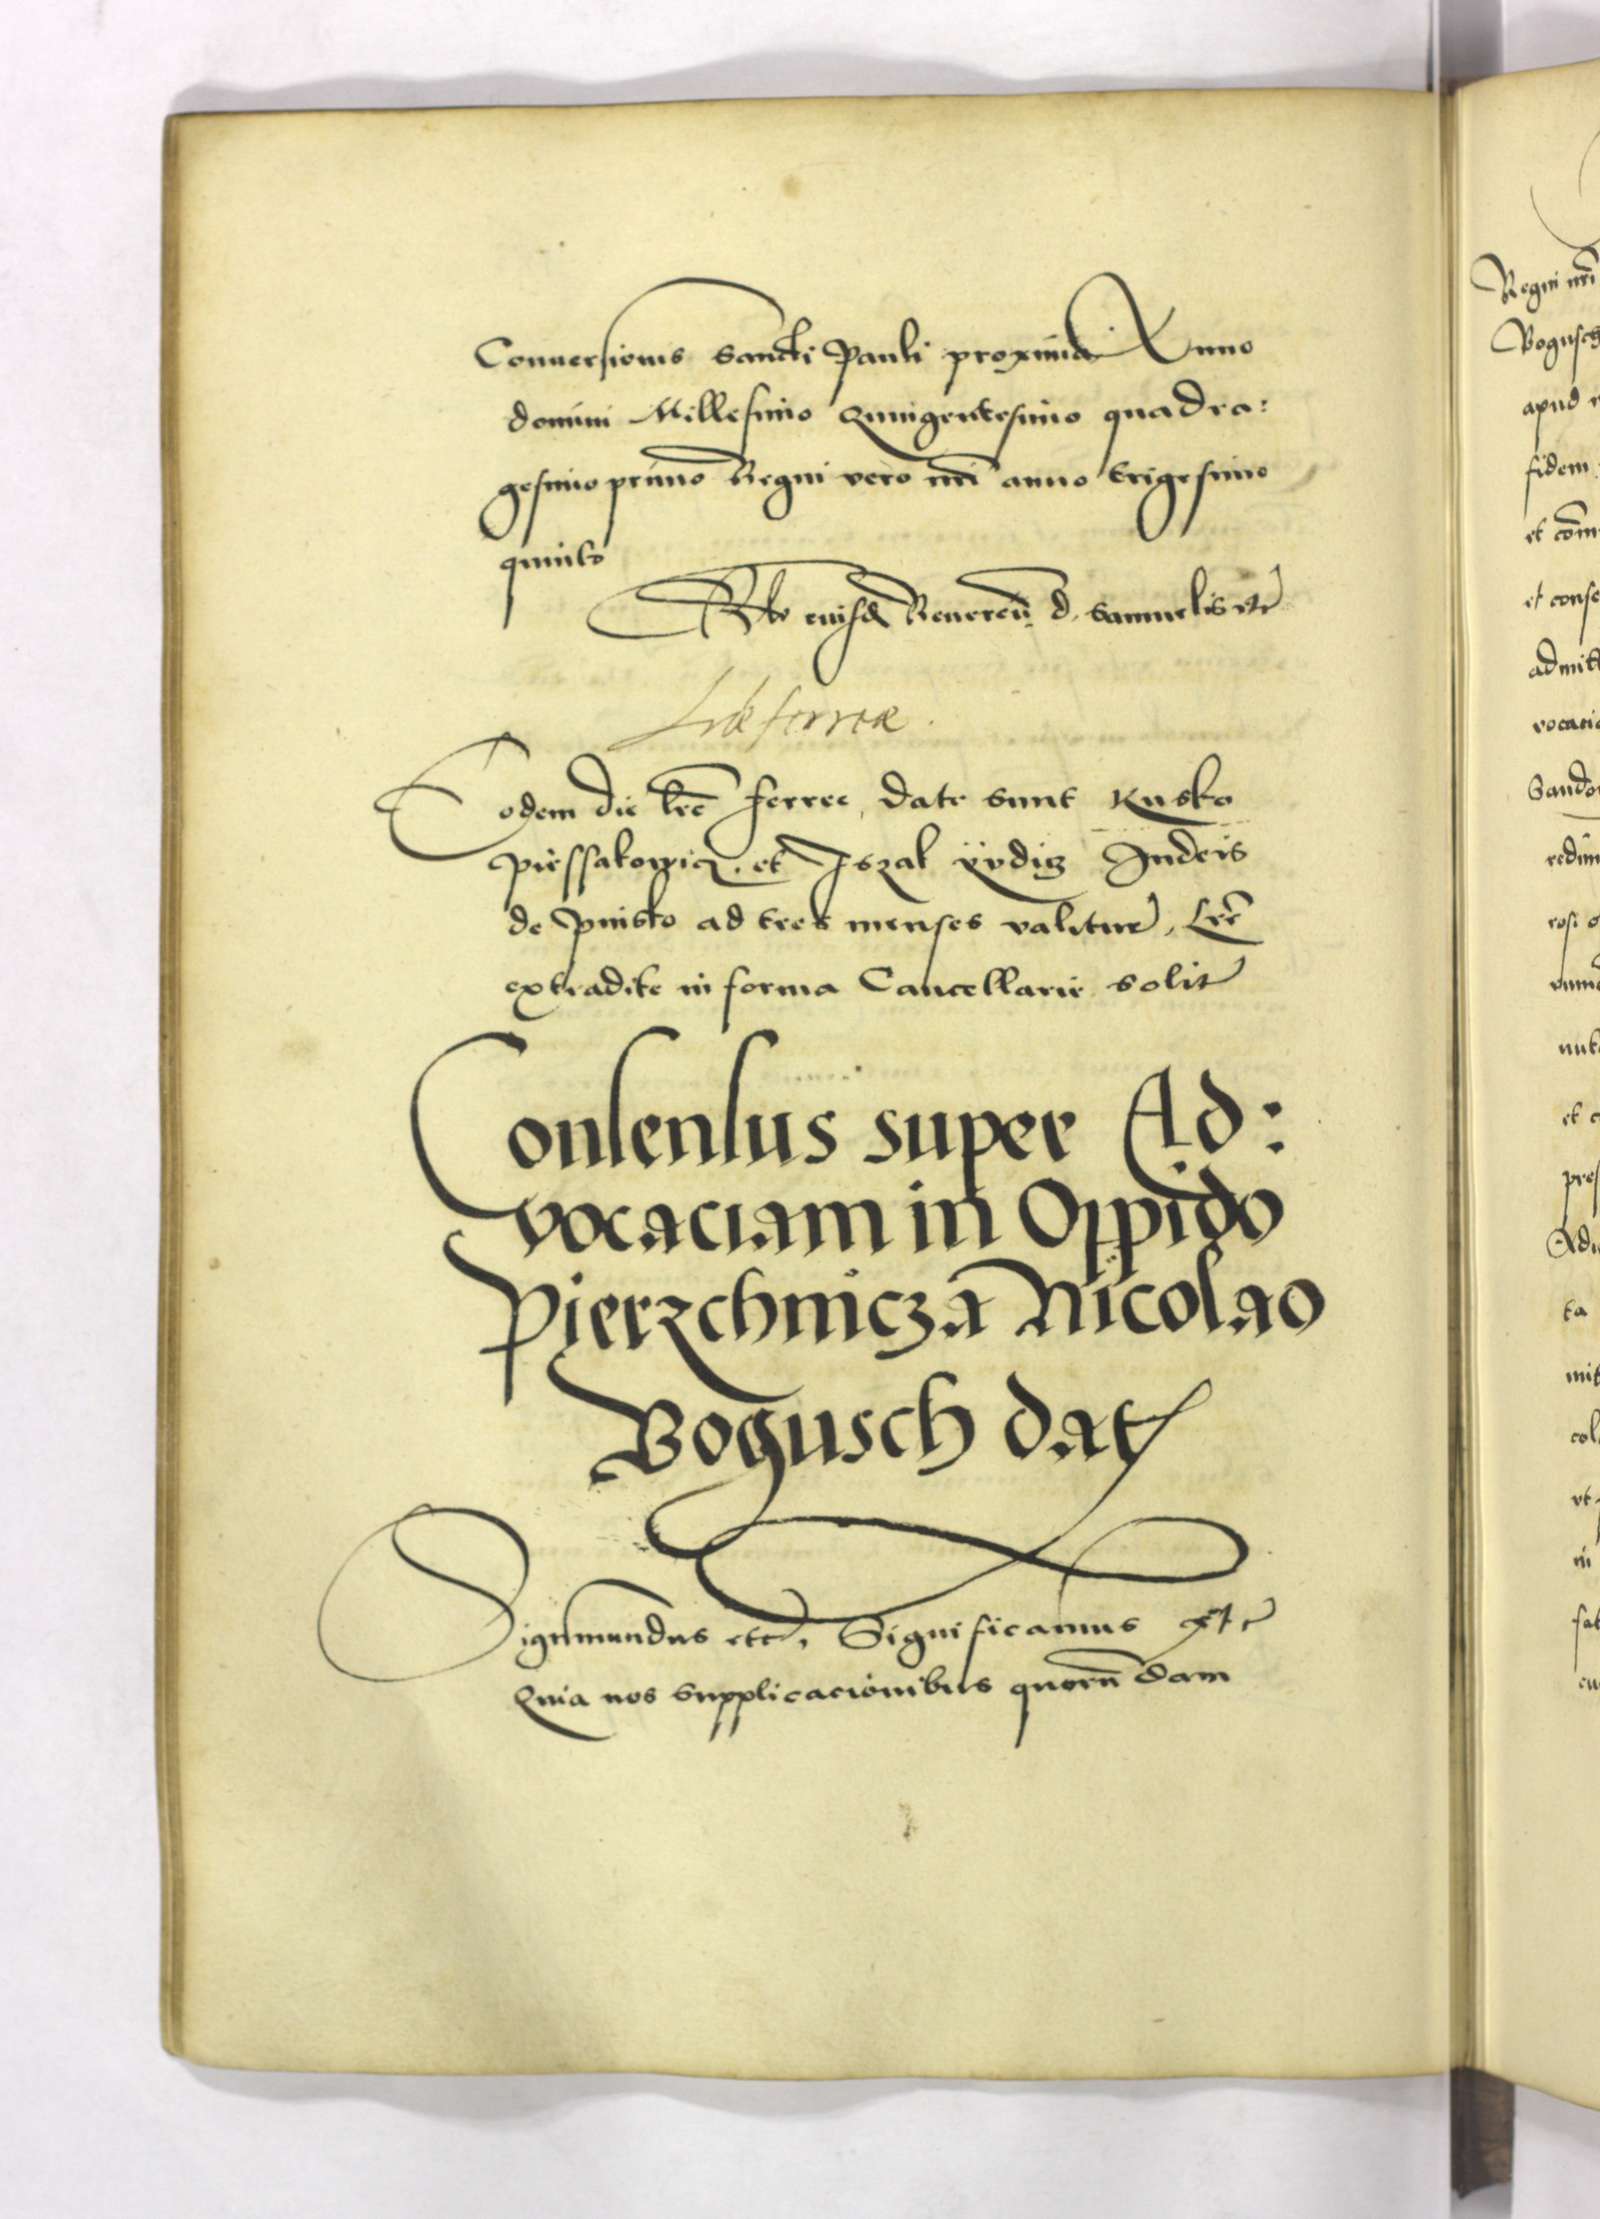 Conuersionis Sancti Pauli proxima Anno
domini Millesimo Quingentesimo quadra:
gesimo primo Regni vero nri anno trigesimo
quinto
Rlo eiusd Reueren d. Samuelis etc
Lrae ferreae.
Eodem die lre ferree, date sunt Kusko
Piessakowicz et Iszak yvdicz Iudeis
de Pinsko ad tres menses valiture, Lre
extradite in forma Cancellarie solit
Consensus super Ad:
vocaciam in Oppido
Pierzchnicza Nicolao
Bogusch dat
Sigismundus etc, Significamus etc
Quia nos supplicacionibus quorundam
Regni nri
Bogusch
apud
fidem
et
et conse
admitt
vocaci
Sando
redim
et
ta